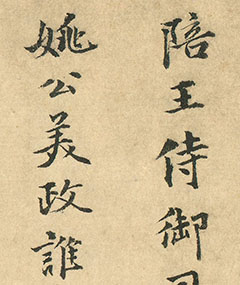 陪王侍御同
姚公美政誰